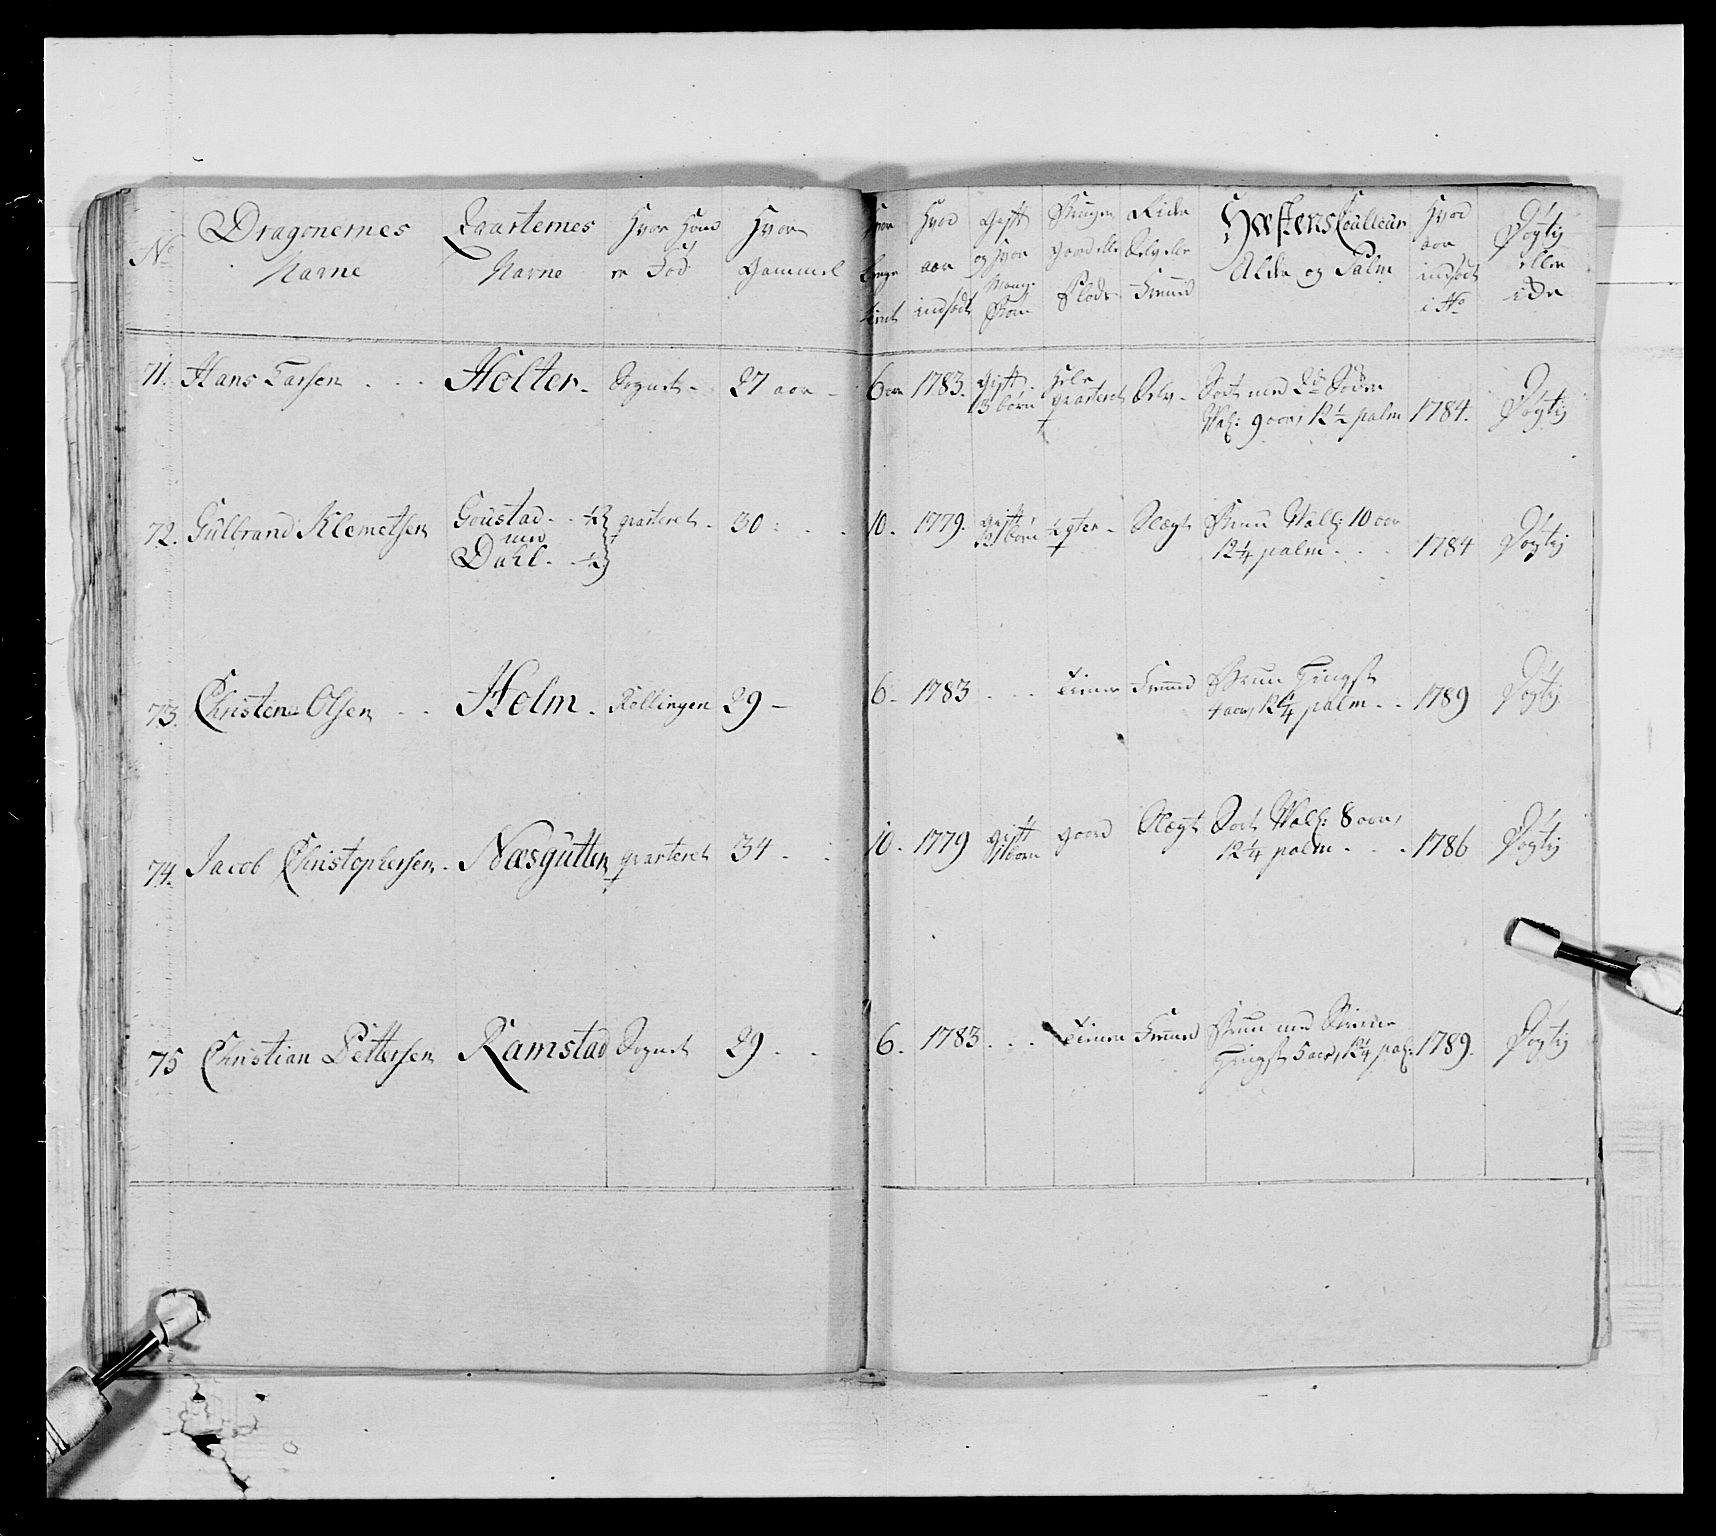 No
Dragonernes Narne
Qvarternes Narne
Hvor Hand er Fød
Hvor Gammel
Hvor lenge tient
Hvad aar indsadt
Gift og Hvor Mange Børn
Bruger gaard eller Plads
Ride Selv eller Fremmed
Hæstens Couleur Alder og Palm
Hvad aar indsadt i No
Døgtig eller ide
71. Hans Larsen . . . Holter. Sognet - 27 aar - 6 aar 1783. gift 3 børn Hele qvarteret Selv - Sort med 2de Sider
Val: 9 aar, 12 1/2 palm 1784. Døgtig
72. Gulbrand Klemetsen Goustad . . 1/2 qvarteret . 30 : . . 10. 1779. gift børn 1/2 gter - Slægt Brun Vall: 10 aar
med
Dahl . 1/2 12 1/4 palm . . . 1784 Døgtig
73. Christen Olsen . . Holm . Kollingen 29 - 6. 1783 . . . tiener Fremmed Brun Hingst
4 aar, 12 1/4 palm . . 1789 Døgtig
74. Jacob Christophersen . Næsgutten qvarteret 34 . . 10. 1779 gift 1 børn gaard Slægt Sort Vall: 8 aar,
12 1/4 palm . . . 1786 Døgtig
75 Christian Pettersen Ramstad Sognet 29 . . 6. 1783 . . . tiener Fremmed Brun med
Hingst 5 aar, 12 1/4 pal: 1789. Døgtig